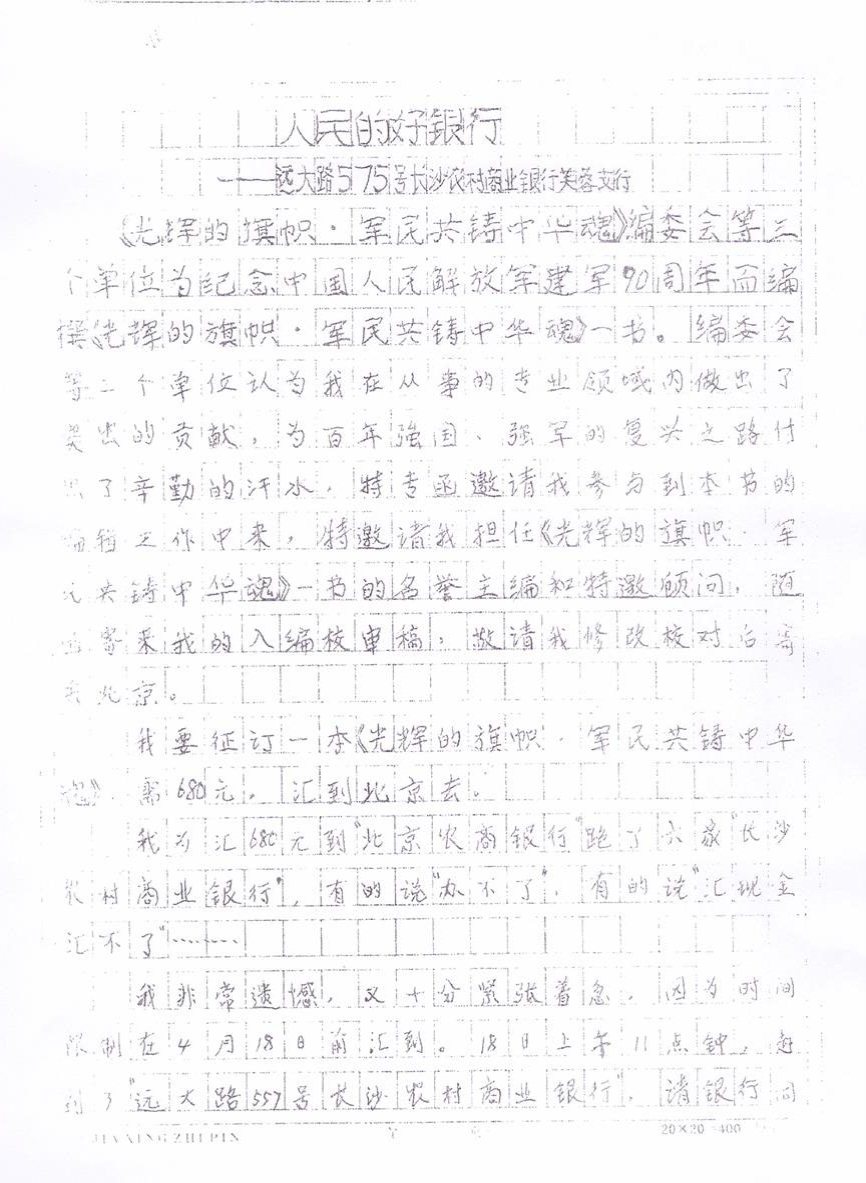 人民的好银行
——远大路575号长沙农村商业银行芙蓉支行
《光辉的旗帜·军民共铸中华魂》编委会等三
个单位为纪念中国人民解放军建军90周年而编
撰《光辉的旗帜·军民共铸中华魂》一书。编委会
等三个单位认为我在从事的专业领域内做出了
突出的贡献，为百年强国、强军的复兴之路付
出了辛勤的汗水。特专函邀请我参与到本书的
编辑工作中来，特邀请我担任《光辉的旗帜·军
民共铸中华魂》一书的名誉主编和特邀顾问，随
函寄来我的入编校审稿，敬请我修改校对后寄
北京。
我要征订一本《光辉的旗帜·军民共铸中华
魂》需680元。汇到北京去。
我为汇680元到"北京农商银行"跑了六家"长沙
农村商业银行"，有的说"办不了"，有的说"汇现金
汇不了"……
我非常遗憾，又十分紧张着急，因为时间
限制在4月18日前汇到。18日上午11点钟，
到了"远大路557号长沙农村商业银行"，请银行同
JIAXINGZHIPIN
20×20=400